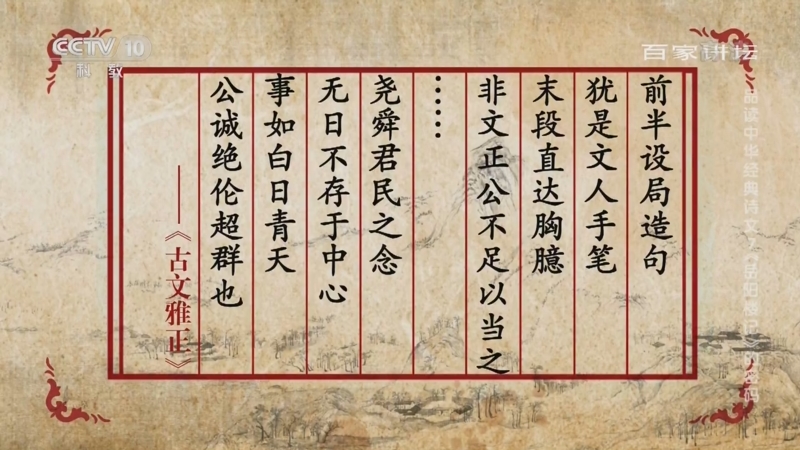 CCTV 10
科教
百家讲坛
前半设局造句
犹是文人手笔
末段直达胸臆
非文正公不足以当之
……
尧舜君民之念
无日不存于中心
事如白日青天
公诚绝伦超群也
——《古文雅正》
品读中华经典诗文